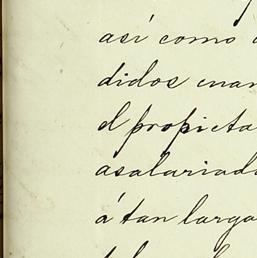 así como
didos cuan
el propieta
asalariad
á tan larga